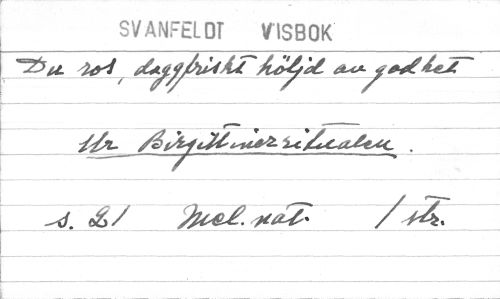 SVANFELDT VISBOK
Du ros, daggfriskt höljd av godhet
Ur Birgittinerritualen.
s. 21 Mel. not. 1 str.